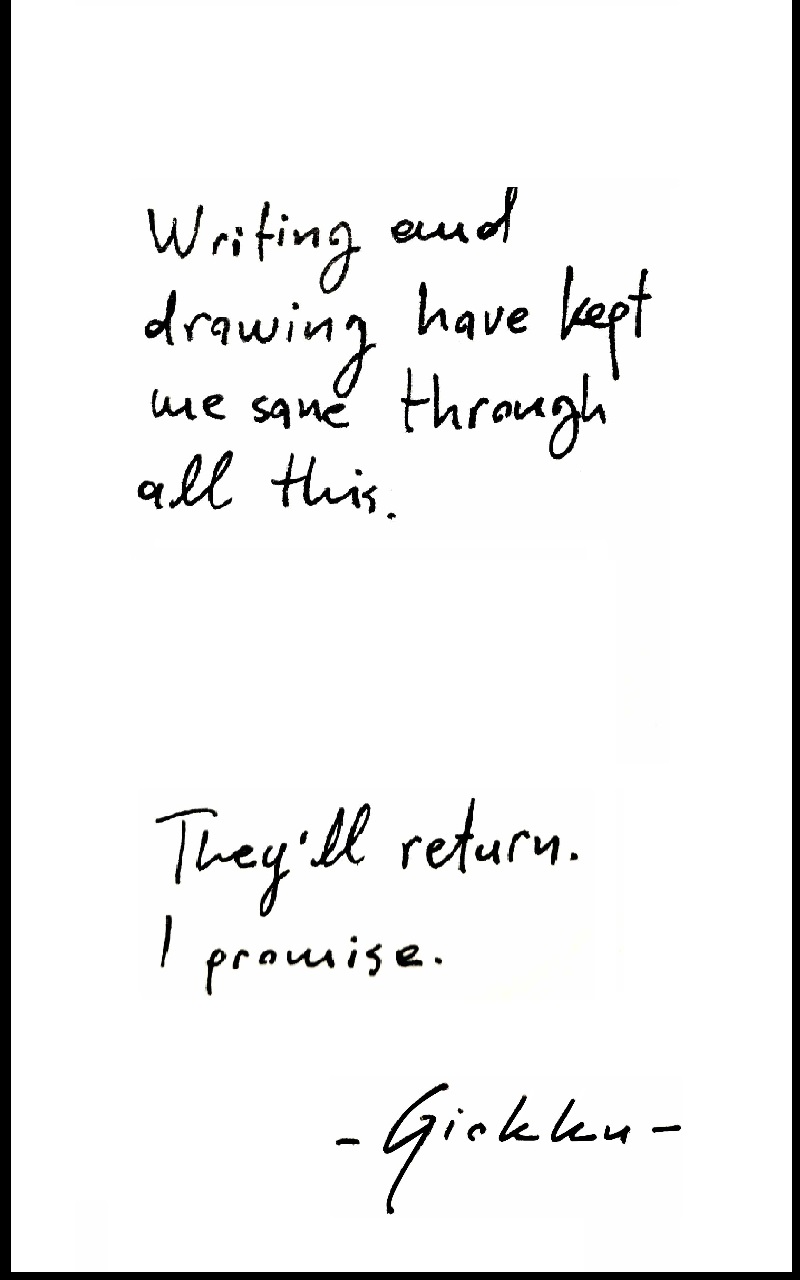 Writing and
drawing have kept
me sane through
all this.
They'll return.
I promise.
- Gickku -